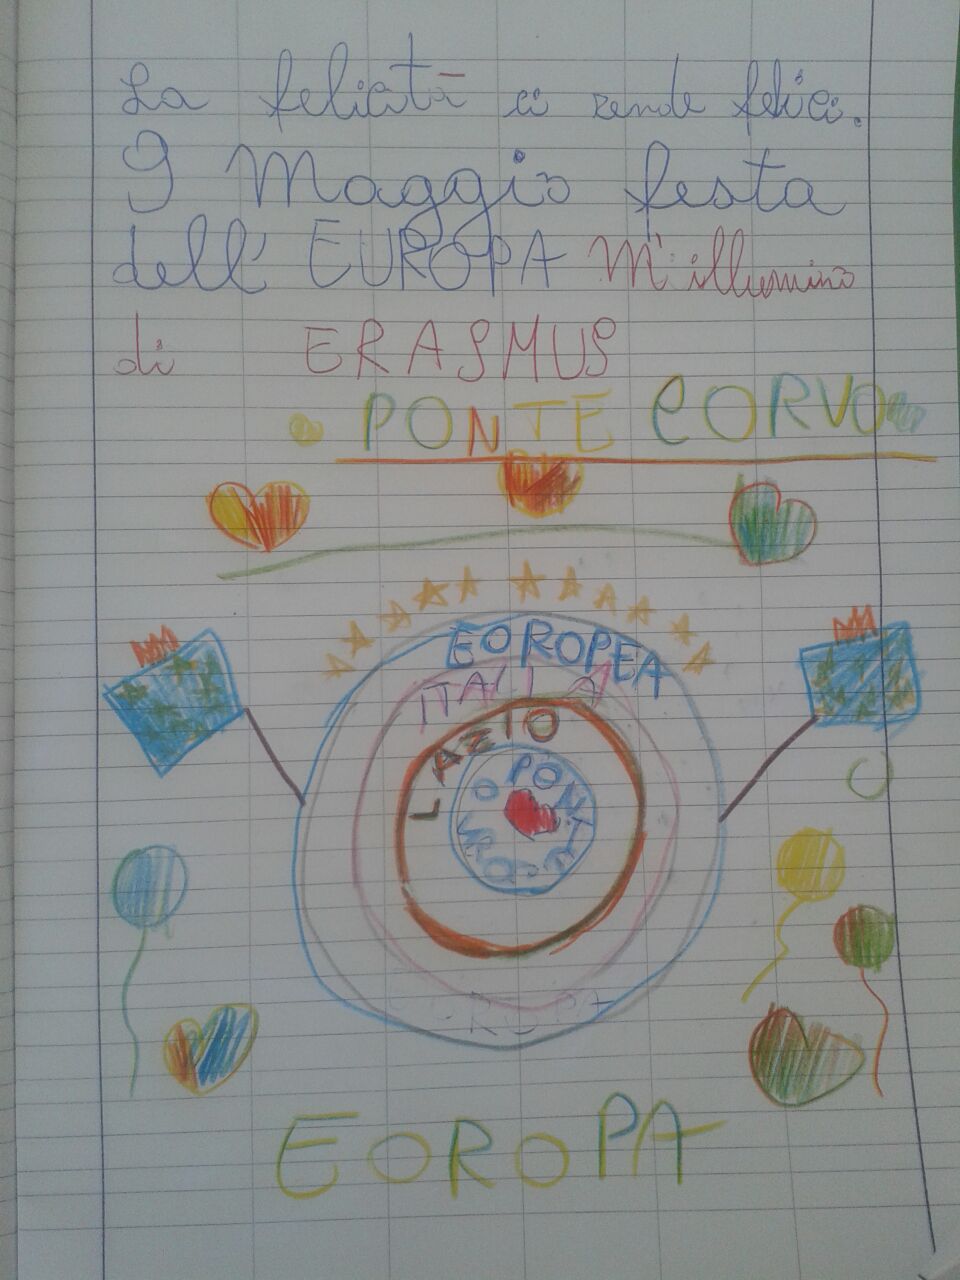 La felicità ci rende felici.
9 Maggio festa
dell'EUROPA M'illumino
di ERASMUS
PONTE CORVO
EOROPEA
ITALIA
LAZIO
PONTECORVO
EOROPA